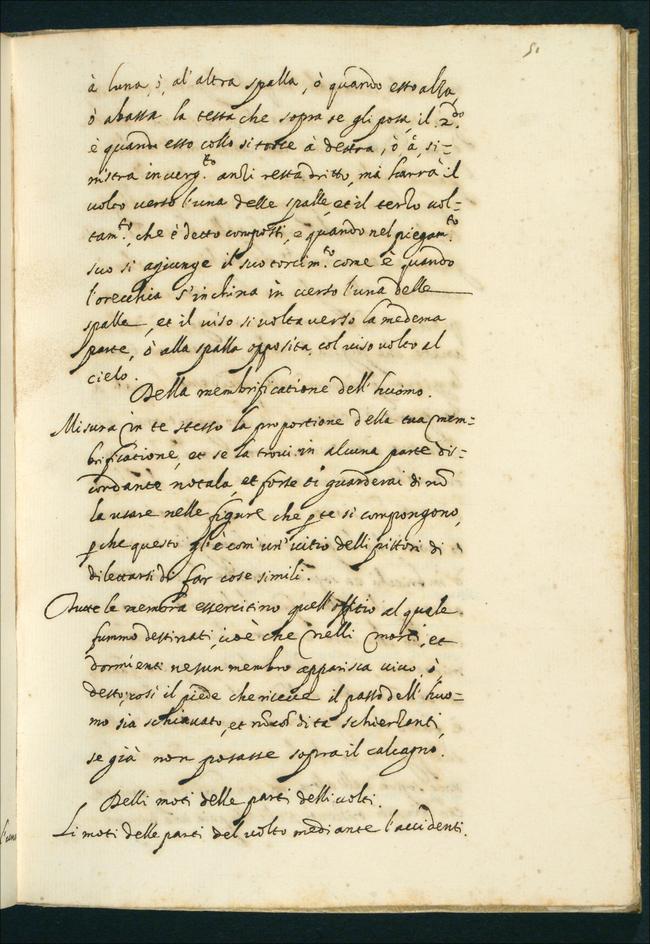 51
à l'una, ò, al'altra spalla, ò quando esso alza,
ò abassa la testa che sopra se gli posa, il 2.do
è quando esso collo si torce à destra, ò à, si=
nistra in verg.to anzi resta dritto, mà harrà il
volto verso l'una delle spalle, et il terzo vol=
tam.to, che è detto composti, è quando nel piegam.to
suo si agiunge il suo torcim.to come è quando
l'orecchia s'inchina in verso l'una delle
spalle, et il viso si volta verso la medema
parte, ò alla spalla opposita, col viso volto al
cielo.
Della membrificatione dell'huomo.
Misura in te stesso la proportione della tua mem=
brificatione, et se la trovi in alcuna parte dis=
cordante notala, et forse ti guarderai di nõ
la usare nelle figure che p te si compongono,
p che questo gl'è com'un'vitio delli pittori di
dilettarsi di far cose simili.
Tutte le membra essercitino quell'offitio al quale
fummo destinati, cioè che nelli morti, et
dormienti nesun membro apparisca vivo, ò
desto, così il piede che riceve il passo dell'huo=
mo sia schiavato, et nõ cõ dita scherzanti,
se già non posasse sopra il calcagno.
Delli moti delle parti delli volti.
Li moti delle parti del volto mediante l'accidenti.